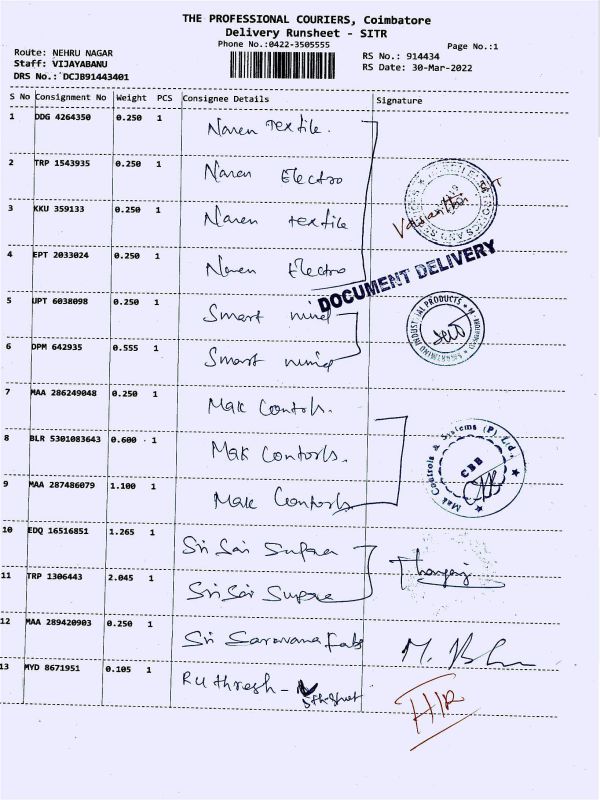 THE PROFESSIONAL COURIERS, Coimbatore
Delivery Runsheet - SITR
Phone No.:0422-3505555
Page No.:1
Route: NEHRU NAGAR
Staff: VIJAYABANU
DRS No.:DCJB91443401
RS No.: 914434
RS Date: 30-Mar-2022
S No Consignment No Weight PCS Consignee Details Signature
1 DDG 4264350 0.250 1 Naren Textile.
2 TRP 1543935 0.250 1 Naren Electro
3 KKU 359133 0.250 1 Naren textile
4 EPT 2033024 0.250 1 Naren Electro
DOCUMENT DELIVERY
5 UPT 6038098 0.250 1 Smart mind
SMARTMIND INDUSTRIAL PRODUCTS
6 DPM 642935 0.555 1 Smart mind
7 MAA 286249048 0.250 1 Mak Controls.
8 BLR 5301083643 0.600 1 Mak Contorls.
Mak Controls & Systems (P) Ltd.,
CBB
9 MAA 287486079 1.100 1 Mak Contorls
10 EDQ 16516851 1.265 1 Sri Sai
11 TRP 1306443 2.045 1 Sri Sai
12 MAA 289420903 0.250 1 Sri Saravana Fab
13 MYD 8671951 0.105 1 Ruthresh -